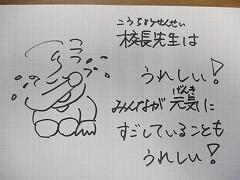 こうちょうせんせい
校長先生は
うれしい!
げんき
みんなが元気に
すごしていることも
うれしい!